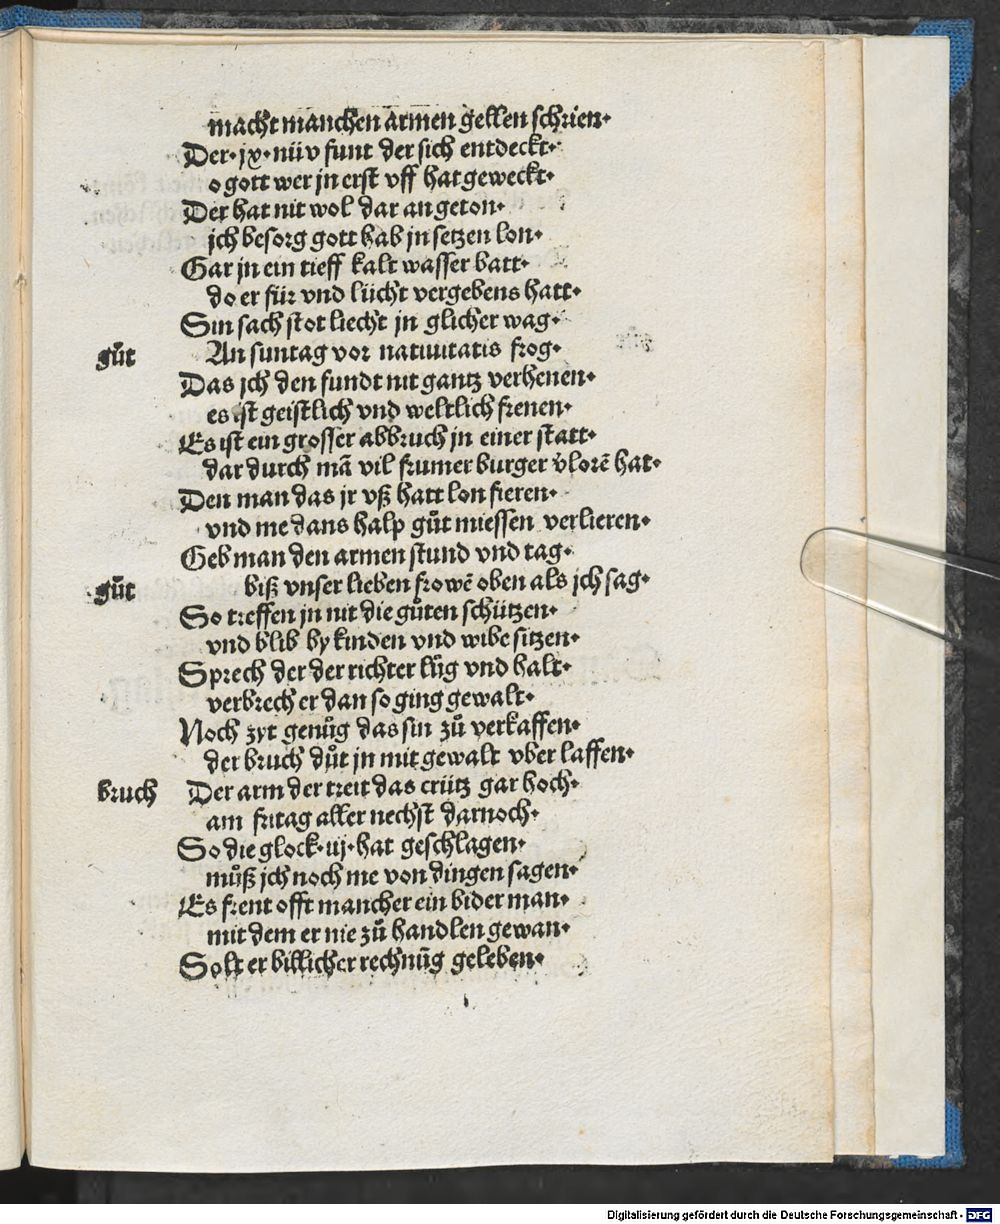 macht manchen armen gellen schrien·
Der·jx·nüv funt der sich entdeckt·
o gott wer jn erst vff hat geweckt·
Der hat nit wol dar an geton·
jch besorg gott hab jn setzen lon·
Gar jn ein tieff kalt wasser batt·
do er für vnd lücht vergebens hatt·
Sin sach stot liecht jn glicher wag·
gůt An suntag vor natiuitatis frog·
Das jch den fundt nit gantz verhenen·
es ist geistlich vnd weltlich frenen·
Es ist ein grosser abbruch jn einer statt·
dar durch mā vil frumer burger v̓lorē hat·
Den man das jr vß hatt lon fieren·
vnd me dans halp gůt miessen verlieren·
Geb man den armen stund vnd tag·
gůt biß vnser lieben frowē oben als jch sag·
So treffen jn nit die gůten schützen·
vnd blib by kinden vnd wibe sitzen·
Sprech der der richter lůg vnd halt·
verbrech er dan so ging gewalt·
Noch zyt genůg das sin zů verkaffen·
der bruch důt jn mit gewalt vber laffen·
bruch Der arm der treit das crütz gar hoch·
am fritag aller nechst darnoch·
So die glock·iij·hat geschlagen·
můß jch noch me von dingen sagen·
Es frent offt mancher ein bider man·
mit dem er nie zů handlen gewan·
Solt er billicher rechnūg geleben·
Digitalisierung gefördert durch die Deutsche Forschungsgemeinschaft - DFG